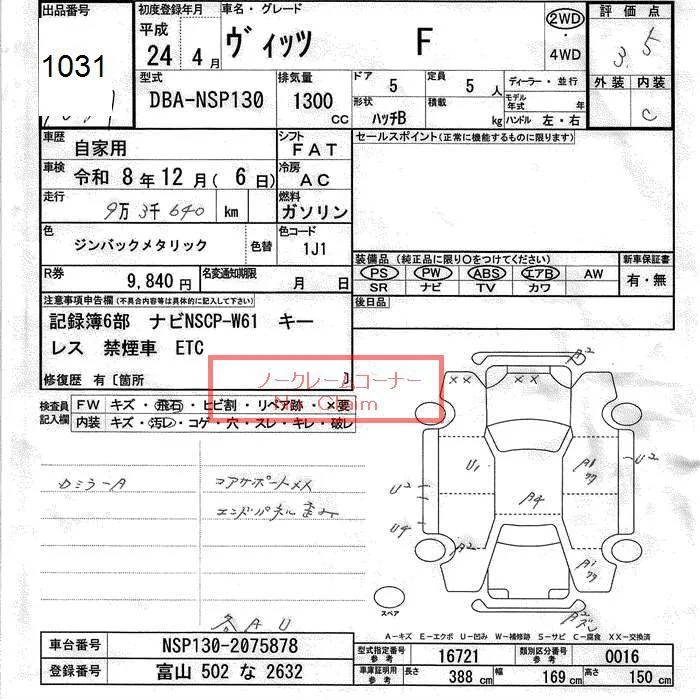 出品番号
1031
初度登録年月
平成
24年 4月
車名・グレード
ヴィッツ F
2WD
・
4WD
評価点
3.5
外装 内装
C
型式
DBA-NSP130
排気量
1300
CC
ドア 5
定員 5 人
ディーラー・並行
形状
ハッチB
積載
kg
モデル年式 年
ハンドル 左・右
車歴
自家用
シフト
FAT
セールスポイント(正常に機能するものに限ります)
車検
令和 8年 12月( 6日)
冷房
AC
走行
9万3千640 km
燃料
ガソリン
色
ジンバックメタリック
色替
色コード
1J1
装備品(純正品に限り○をつけてください)
PS PW ABS エアB AW
SR ナビ TV カワ
新車保証書
有・無
R券
9,840円
名変通知期限
月 日
後日品
注意事項申告欄(不具合内容等は具体的に記入して下さい)
記録簿6部 ナビNSCP-W61 キー
レス 禁煙車 ETC
修復歴 有〔箇所 〕
ノークレームコーナー
No Claim
検査員
記入欄
FW キズ・飛石・ヒビ割・リペア跡・×要
内装 キズ・汚レ・コゲ・穴・スレ・キレ・破レ
カミラーA
コアサポートXX
エンドパネル歪み
各AU
A2
XX
XX
U1
A1
U2
U2
A4
U4
A2
A1
スペア
A-キズ E-エクボ U-凹み W-補修跡 S-サビ C-腐食 XX-交換済
車台番号
NSP130-2075878
登録番号
富山 502 な 2632
型式指定番号
参考
16721
類別区分番号
参考
0016
車庫証明用
参考
長さ 388 cm
幅 169 cm
高さ 150 cm